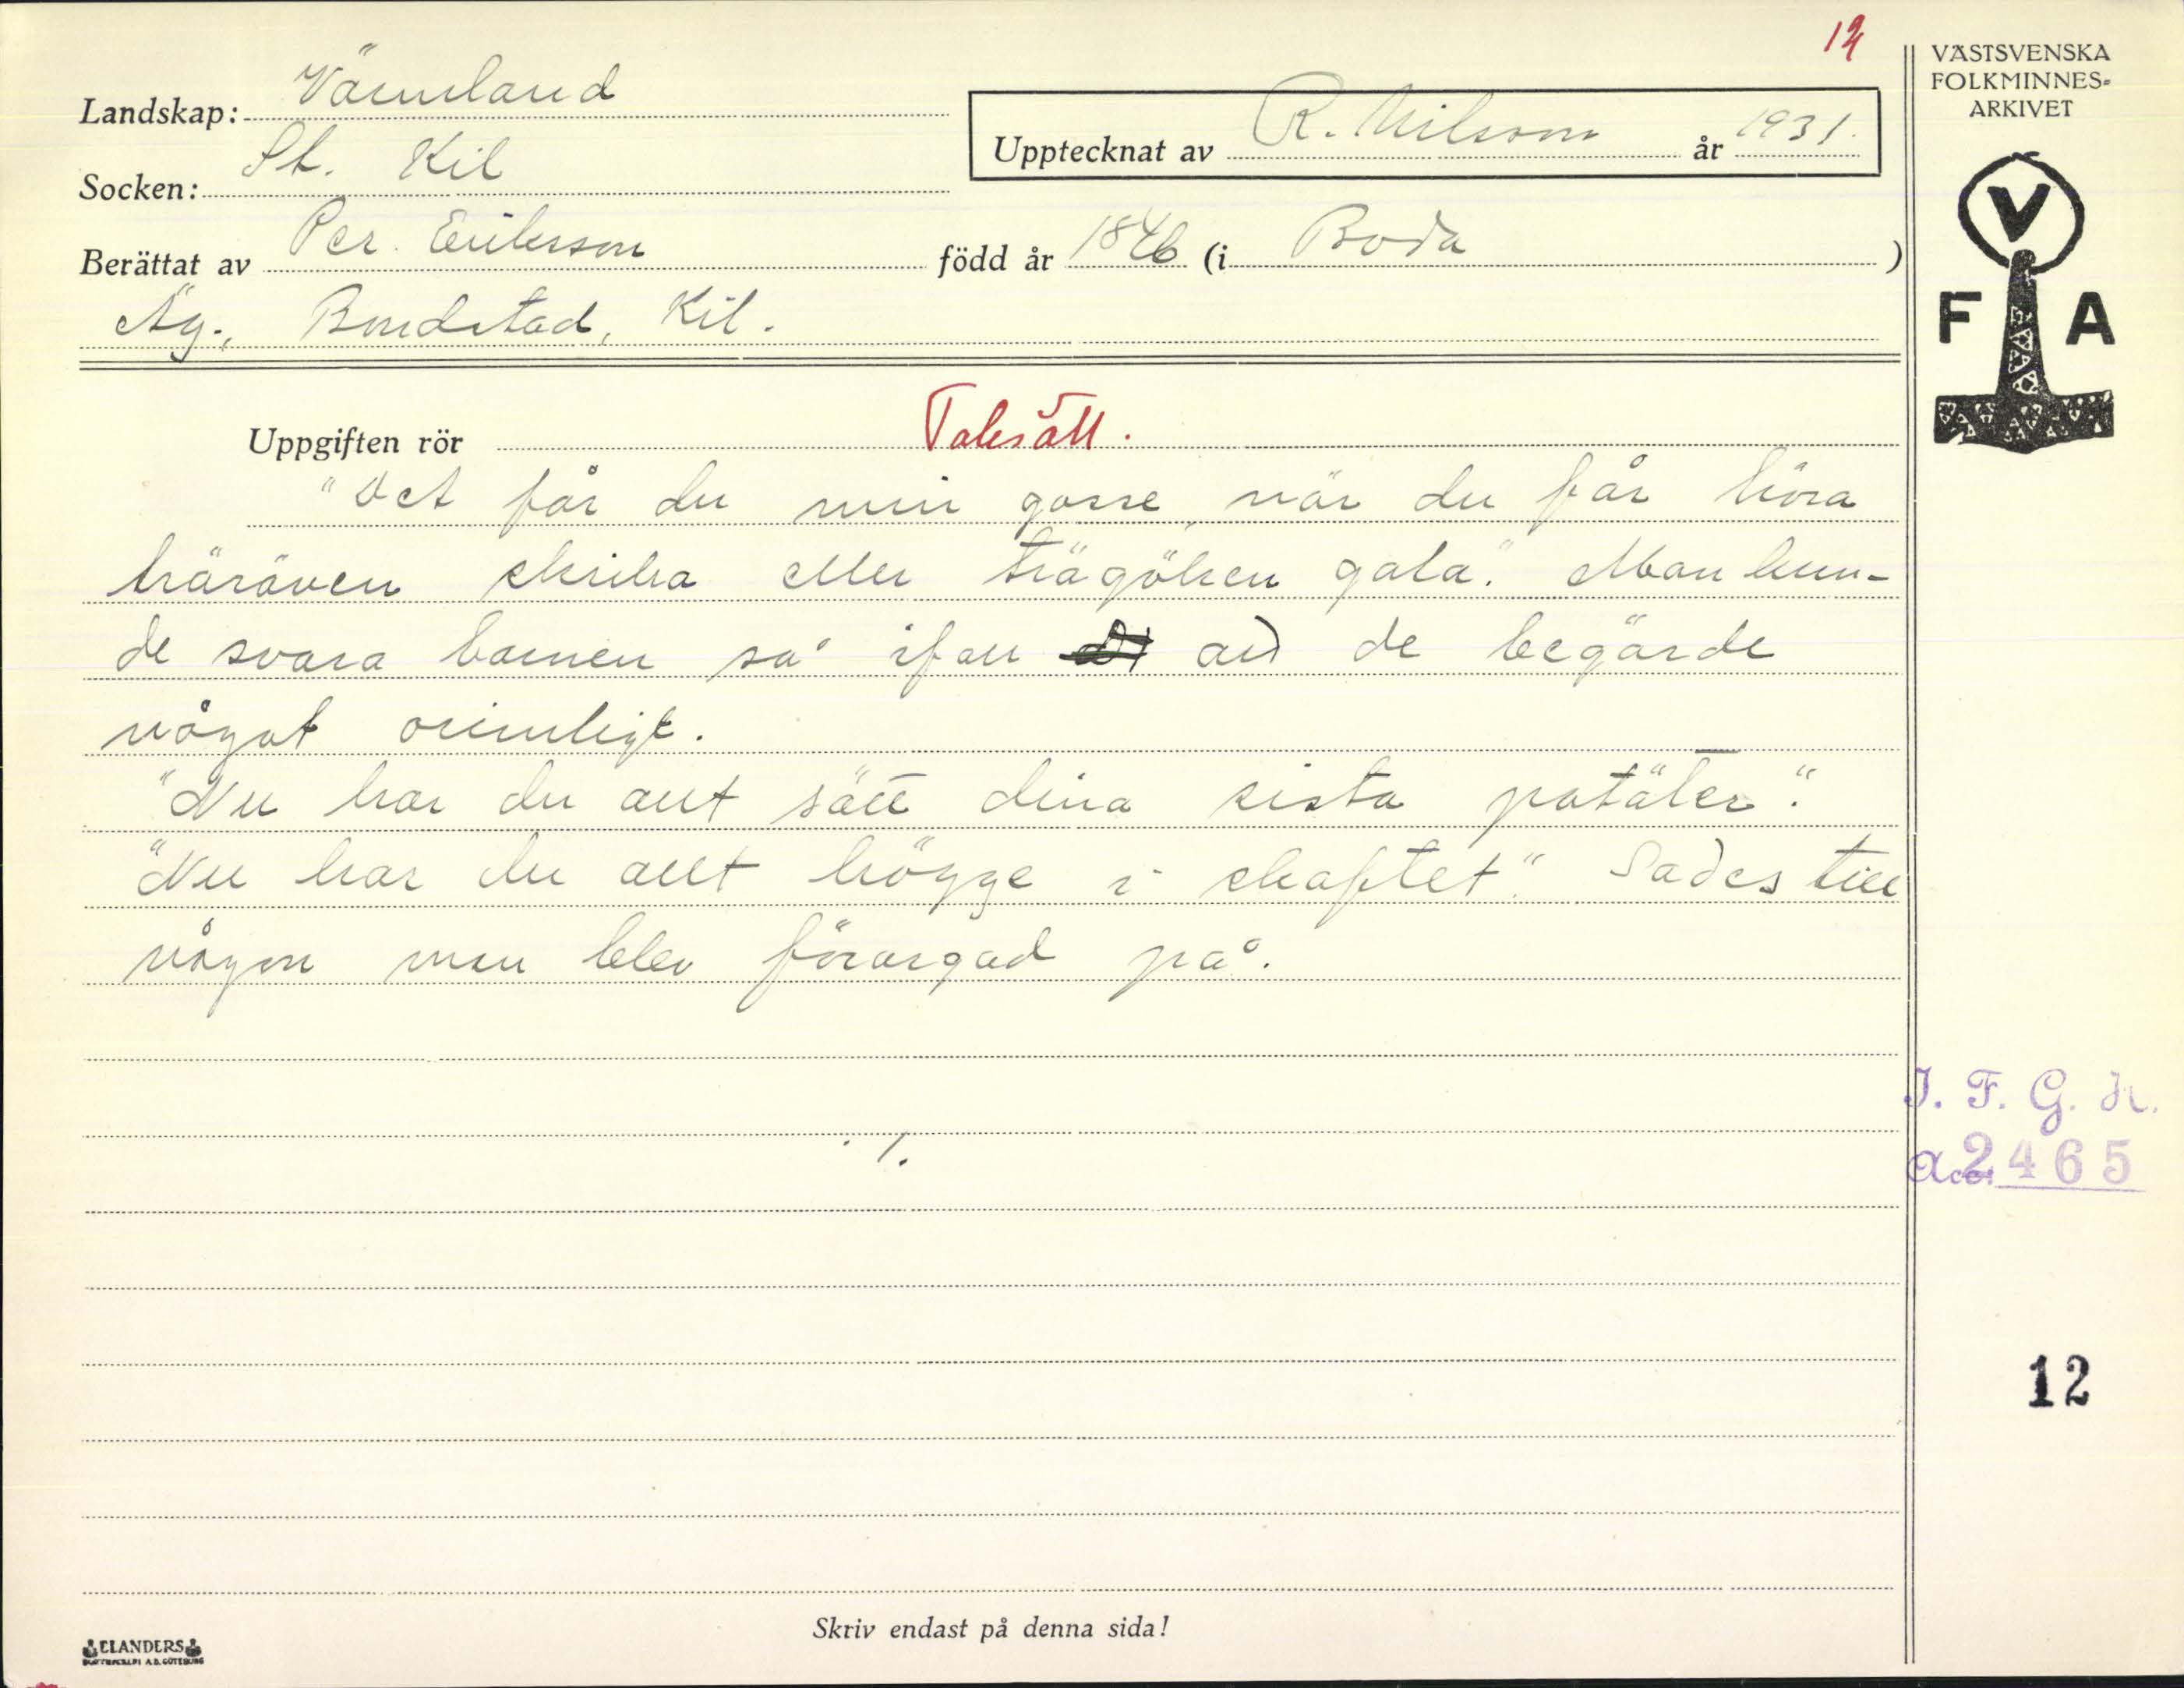 12
VÄSTSVENSKA
FOLKMINNES-
ARKIVET
Landskap: Värmland
Upptecknat av R. Nilsson år 1931.
Socken: St. Kil
Berättat av Per Eriksson född år 1846 (i Boda)
Äg., Bondstad, Kil.
V
F A
Uppgiften rör Talesätt.
"Det får du min gosse, när du får höra
häräven skrika eller trägöken gala." Man kun-
de svara barnen så ifall att de begärde
något orimligt.
"Nu har du allt sått dina sista potäter."
"Nu har du allt högge i skaftet." Sades till
någon man blev förargad på.
./.
I. F. G. H.
Acc. 2465
12
Skriv endast på denna sida!
ELANDERS
BOKTRYCKERI A.B. GÖTEBORG